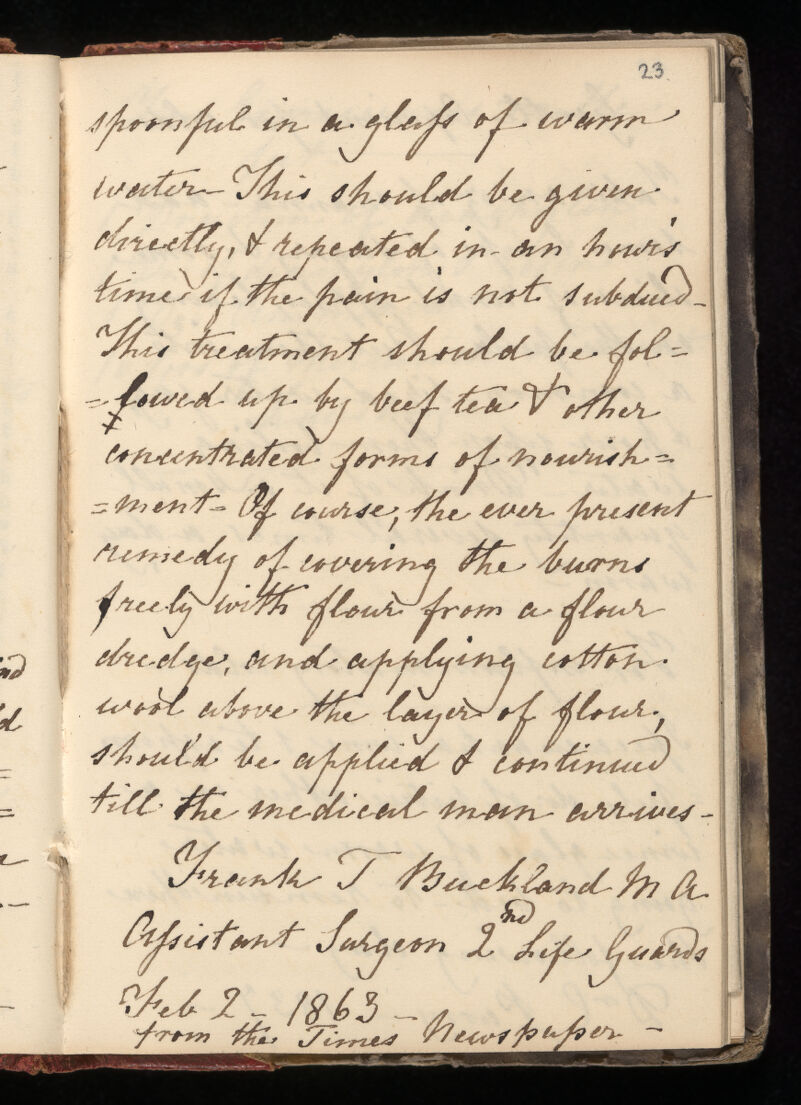 23
spoonful in a glass of warm
water - This should be given
directly, & repeated in an hour's
time if the pain is not subdued -
This treatment should be fol=
=lowed up by beef tea & other
concentrated forms of nourish=
=ment - Of course, the ever present
remedy of covering the burns
freely with flour from a flour
dredge, and applying cotton
wool above the layer of flour,
should be applied & continued
till the medical man arrives -
Frank T Buckland M A
Assistant Surgeon 2nd Life Guards
Feb 2 - 1863 -
from the Times Newspaper -